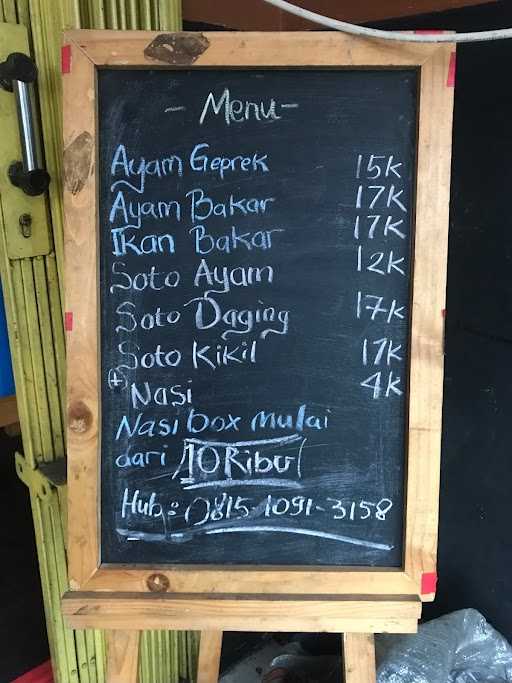 - Menu -
Ayam Geprek 15K
Ayam Bakar 17K
Ikan Bakar 17K
Soto Ayam 12K
Soto Daging 17K
Soto Kikil 17K
(+) Nasi 4K
Nasi box mulai
dari 10 Ribu
Hub: 0815-1091-3158